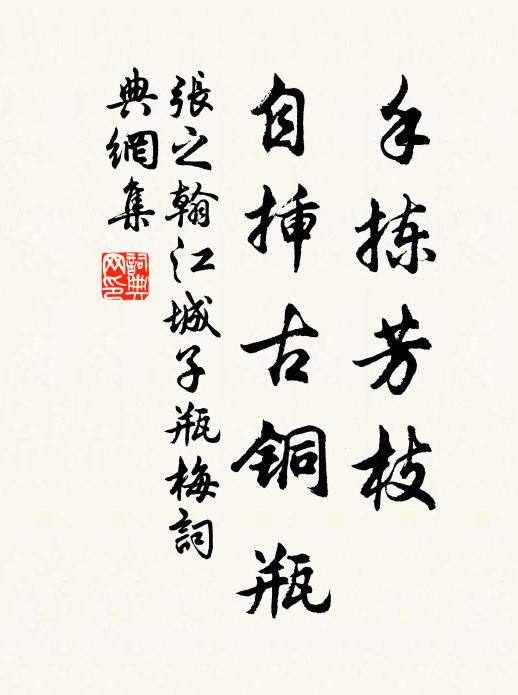 手拣芳枝
自揷古铜瓶
張之翰江城子瓶梅詞
典網集
詞典网印